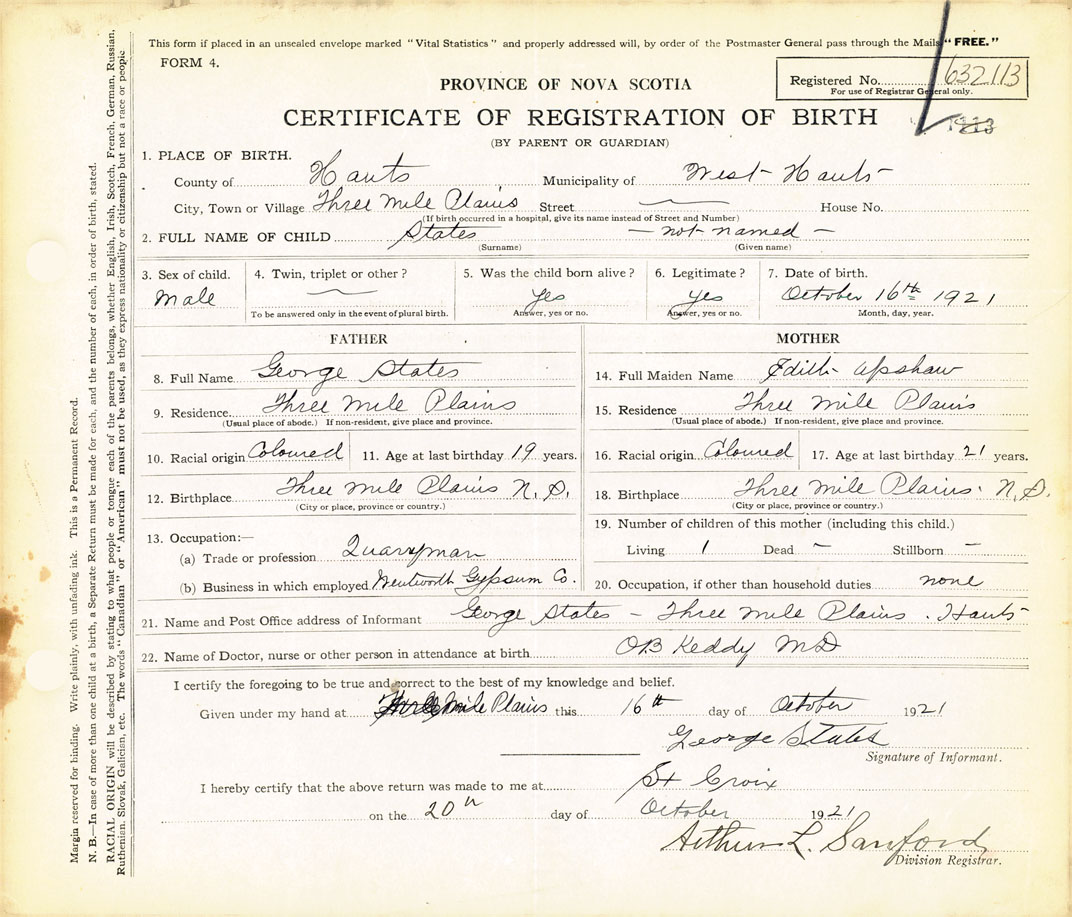 This form if placed in an unsealed envelope marked "Vital Statistics" and properly addressed will, by order of the Postmaster General pass through the Mails "FREE."
FORM 4.
PROVINCE OF NOVA SCOTIA
Registered No. 632113
For use of Registrar General only.
CERTIFICATE OF REGISTRATION OF BIRTH
(BY PARENT OR GUARDIAN)
1. PLACE OF BIRTH.
County of Hants Municipality of West Hants
City, Town or Village Three Mile Plains Street — House No.
(If birth occurred in a hospital, give its name instead of Street and Number)
2. FULL NAME OF CHILD States — not named —
(Surname) (Given name)
3. Sex of child. Male
4. Twin, triplet or other? —
To be answered only in the event of plural birth.
5. Was the child born alive? Yes
Answer, yes or no.
6. Legitimate? Yes
Answer, yes or no.
7. Date of birth. October 16th 1921
Month, day, year.
FATHER
8. Full Name George States
9. Residence Three Mile Plains
(Usual place of abode.) If non-resident, give place and province.
10. Racial origin Coloured 11. Age at last birthday 19 years.
12. Birthplace Three Mile Plains N.S.
(City or place, province or country.)
13. Occupation:—
(a) Trade or profession Quarryman
(b) Business in which employed Wentworth Gypsum Co.
MOTHER
14. Full Maiden Name Edith Upshaw
15. Residence Three Mile Plains
(Usual place of abode.) If non-resident, give place and province.
16. Racial origin Coloured 17. Age at last birthday 21 years.
18. Birthplace Three Mile Plains N.S.
(City or place, province or country.)
19. Number of children of this mother (including this child.)
Living 1 Dead – Stillborn –
20. Occupation, if other than household duties none
21. Name and Post Office address of Informant George States – Three Mile Plains . Hants
22. Name of Doctor, nurse or other person in attendance at birth OB Keddy MD
I certify the foregoing to be true and correct to the best of my knowledge and belief.
Given under my hand at Three Mile Plains this 16th day of October 1921
George States
Signature of Informant.
I hereby certify that the above return was made to me at St Croix
on the 20th day of October 1921
Arthur L. Sanford
Division Registrar.
Margin reserved for binding. Write plainly, with unfading ink. This is a Permanent Record.
N. B.—In case of more than one child at a birth, a Separate Return must be made for each, and the number of each, in order of birth, stated.
RACIAL ORIGIN will be described by stating to what people or tongue each of the parents belongs, whether English, Irish, Scotch, French, German, Russian,
Ruthenian, Slovak, Galician, etc. The words "Canadian" or "American" must not be used, as they express nationality or citizenship but not a race or people.